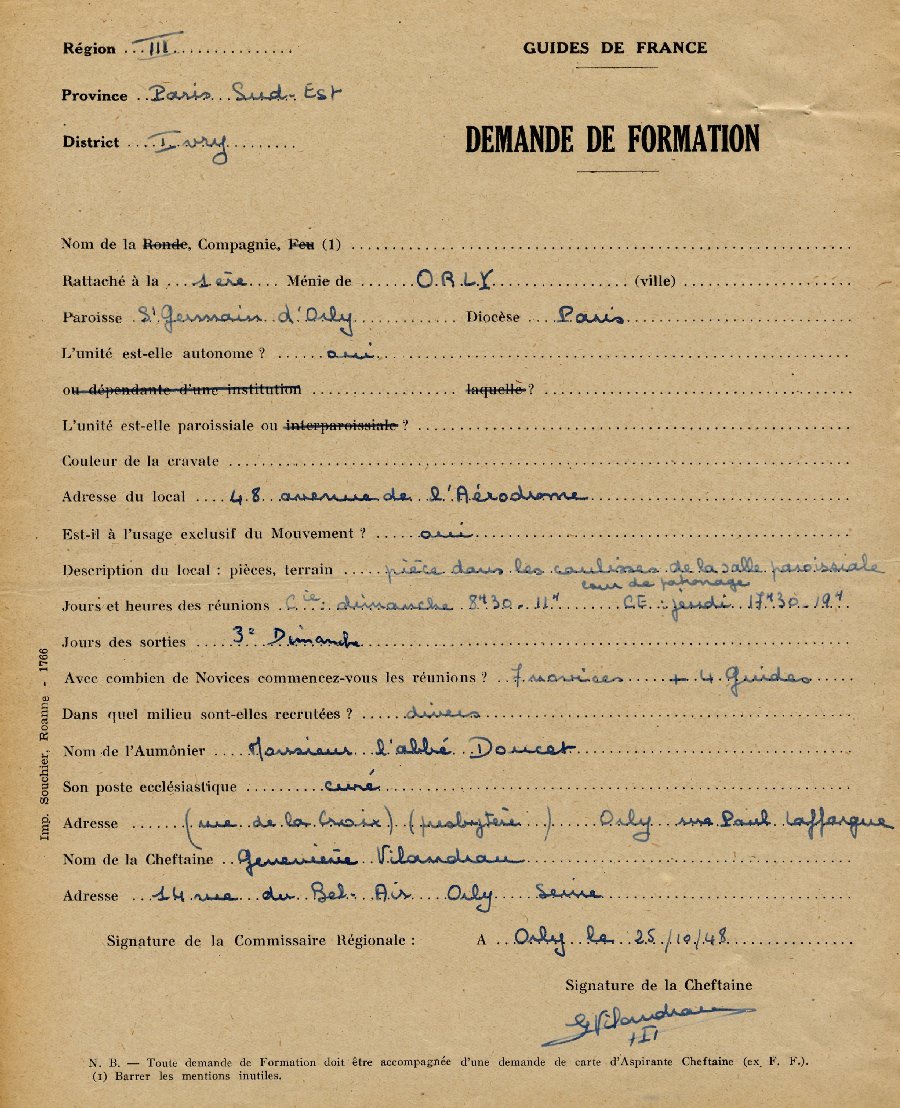 Région III
GUIDES DE FRANCE
Province Paris Sud-Est
DEMANDE DE FORMATION
District Ivry
Nom de la Ronde, Compagnie, Feu (1)
Rattaché à la 1ère Ménie de ORLY (ville)
Paroisse St Germain d'Orly Diocèse Paris
L'unité est-elle autonome ? oui
ou dépendante d'une institution laquelle ?
L'unité est-elle paroissiale ou interparoissiale ?
Couleur de la cravate
Adresse du local 48 avenue de l'Aérodrome
Est-il à l'usage exclusif du Mouvement ? oui
Description du local : pièces, terrain pièce dans les coulisses de la salle paroissiale
cour de patronage
Jours et heures des réunions Cie : dimanche 8h30-11h CE : jeudi 17h30-19h
Jours des sorties 3e Dimanche
Avec combien de Novices commencez-vous les réunions ? 7 novices + 4 Guides
Dans quel milieu sont-elles recrutées ? divers
Nom de l'Aumônier Monsieur l'abbé Doucet
Son poste ecclésiastique curé
Adresse (rue de la Croix) (presbytère) Orly rue Paul Laffargue
Nom de la Cheftaine Geneviève Vilandrau
Adresse 14 rue du Bel-Air Orly Seine
Signature de la Commissaire Régionale : A Orly le 25/10/48
Signature de la Cheftaine
GVilandrau
N. B. — Toute demande de Formation doit être accompagnée d'une demande de carte d'Aspirante Cheftaine (ex F. F.).
(1) Barrer les mentions inutiles.
Imp. Souchier, Roanne - 1766